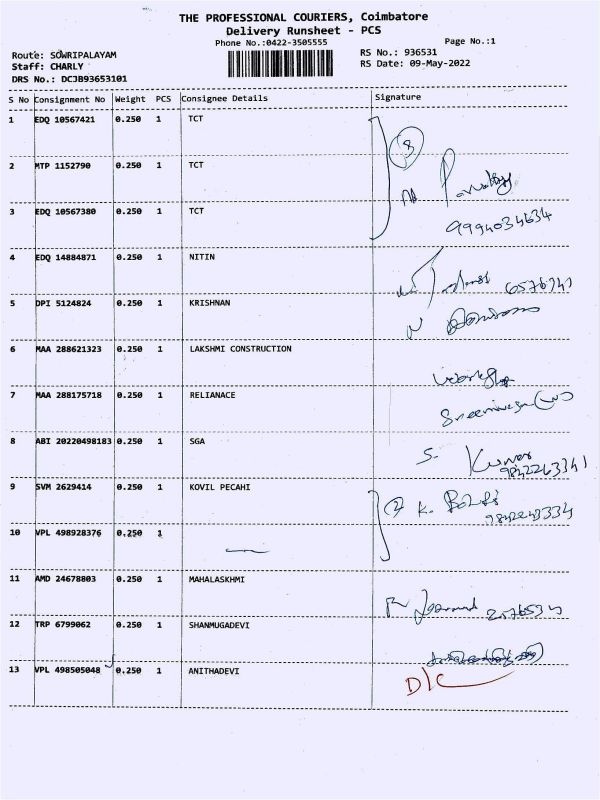 THE PROFESSIONAL COURIERS, Coimbatore
Delivery Runsheet - PCS
Phone No.:0422-3505555 Page No.:1
Route: SOWRIPALAYAM RS No.: 936531
Staff: CHARLY RS Date: 09-May-2022
DRS No.: DCJB93653101
S No Consignment No Weight PCS Consignee Details Signature
1 EDQ 10567421 0.250 1 TCT
3
2 MTP 1152790 0.250 1 TCT
3 EDQ 10567380 0.250 1 TCT
9994034634
4 EDQ 14884871 0.250 1 NITIN
5 DPI 5124824 0.250 1 KRISHNAN
6 MAA 288621323 0.250 1 LAKSHMI CONSTRUCTION
7 MAA 288175718 0.250 1 RELIANACE
8 ABI 20220498183 0.250 1 SGA
S. Kumar
9842263341
9 SVM 2629414 0.250 1 KOVIL PECAHI
2 K.
10 VPL 498928376 0.250 1
11 AMD 24678803 0.250 1 MAHALASKHMI
12 TRP 6799062 0.250 1 SHANMUGADEVI
13 VPL 498505048 0.250 1 ANITHADEVI
D/C